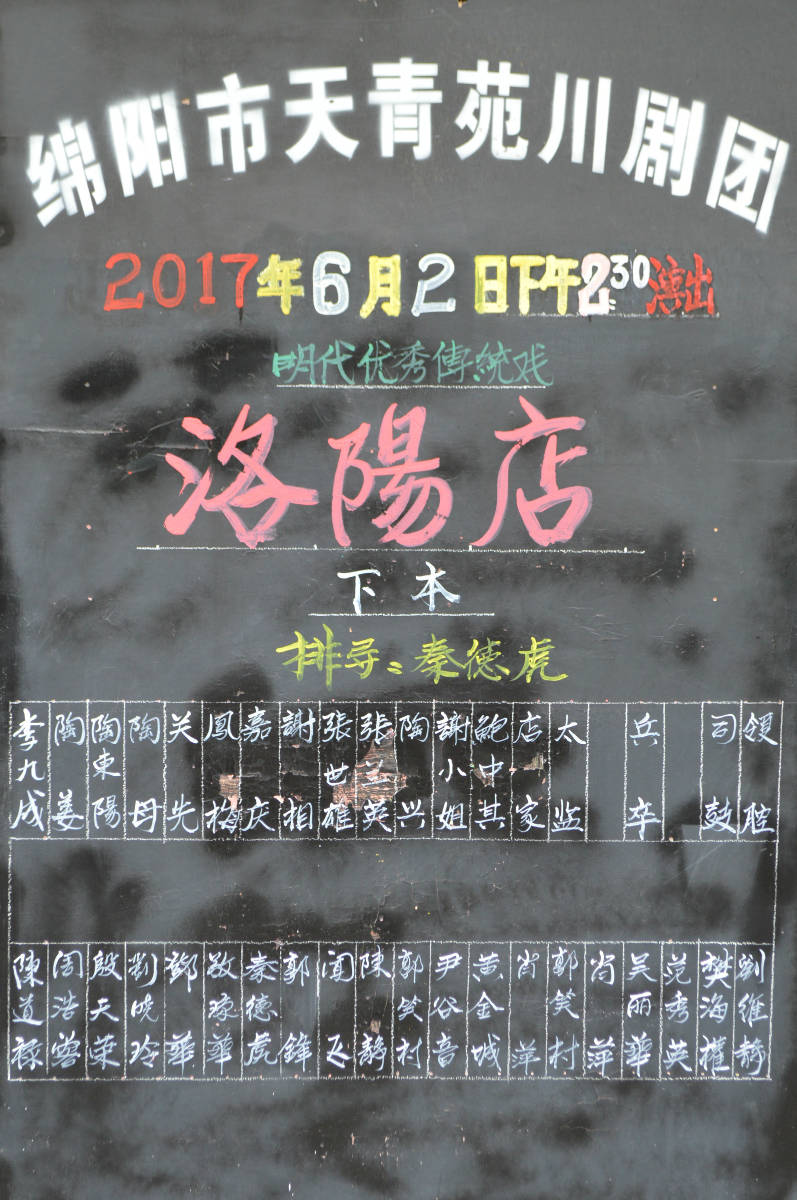 绵阳市天青苑川剧团
2017年6月2日下午2:30演出
明代优秀傳統戏
洛陽店
下本
排导:秦德虎
李九成 陶姜 陶東陽 陶母 关先 鳳梅 嘉庆 謝相 張世雄 張兰英 陶兴 謝小姐 鲍中其 店家 太监 兵卒 司鼓 领腔
陳道禄 周浩蓉 殷天荣 刘晓玲 鄧華 敬琼華 秦德虎 郭鋒 闻飞 陳静 郭笑村 尹谷音 黄金城 肖萍 郭笑村 肖萍 吴丽華 范秀英 樊海權 劉维静